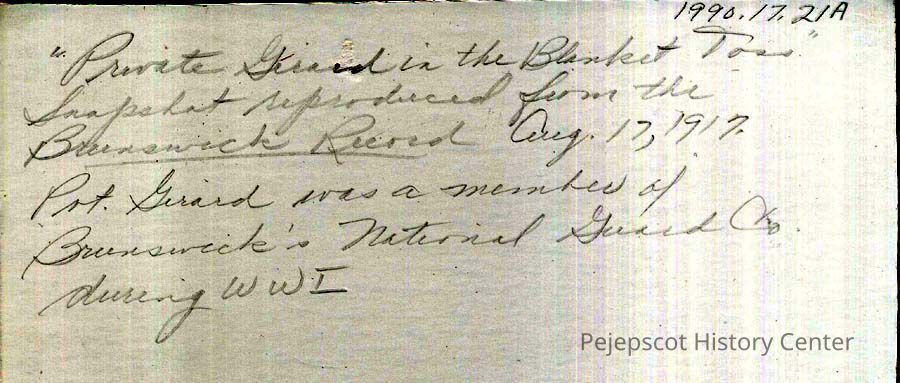 1990.17.21A
"Private Girard in the Blanket Toss"
Snapshot reproduced from the
Brunswick Record Aug. 17, 1917.
Pvt. Girard was a member of
Brunswick's National Guard Co.
during WWI
Pejepscot History Center